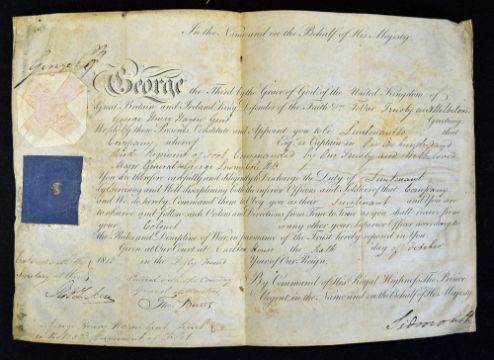 In the Name and on the Behalf of His Majesty
George
George the Third by the Grace of God of the United Kingdom of
Great Britain and Ireland King, Defender of the Faith &c. To Our Trusty and Welbeloved
George Henry Gent Greeting:
We do by these Presents, Constitute and Appoint you to be Lieutenant to
Company whereof Esq. is Captain in Our
Regiment of Foot Commanded by Our Trusty and Welbeloved
Major General George
You are therefore carefully and diligently to Discharge the Duty of Lieutenant
by Exercising and Well disciplining both the inferior Officers and Soldiers of that Company
and We do hereby Command them to Obey you as their Lieutenant and You are
to observe and follow such Orders and Directions from Time to Time as you shall receive from
your Colonel or any other your superior Officer according to
the Rules and Discipline of War, in pursuance of the Trust hereby reposed in You
Given at Our Court at Carlton House the day of October
1812 in the Year of Our Reign.
By Command of His Royal Highness The Prince
Regent, in the Name and on the Behalf of His Majesty.
Sidmouth
George Henry Gent
Regiment of Foot